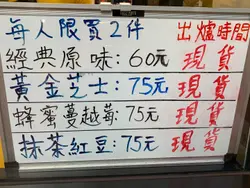 每人限買2件 出爐時間
經典原味:60元 現貨
黃金芝士:75元 現貨
蜂蜜蔓越莓:75元 現貨
抹茶紅豆:75元 現貨